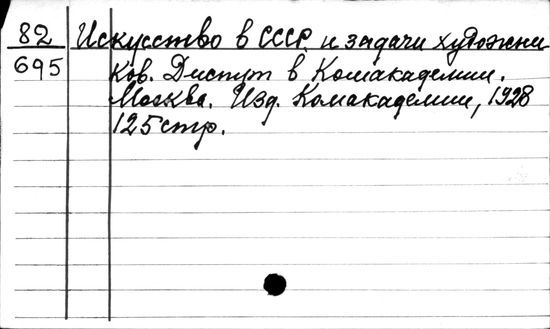 82 Искусство в СССР и задачи художни
695 ков. Диспут в Комакадемии.
Москва. Изд. Комакадемии, 1928
125 стр.